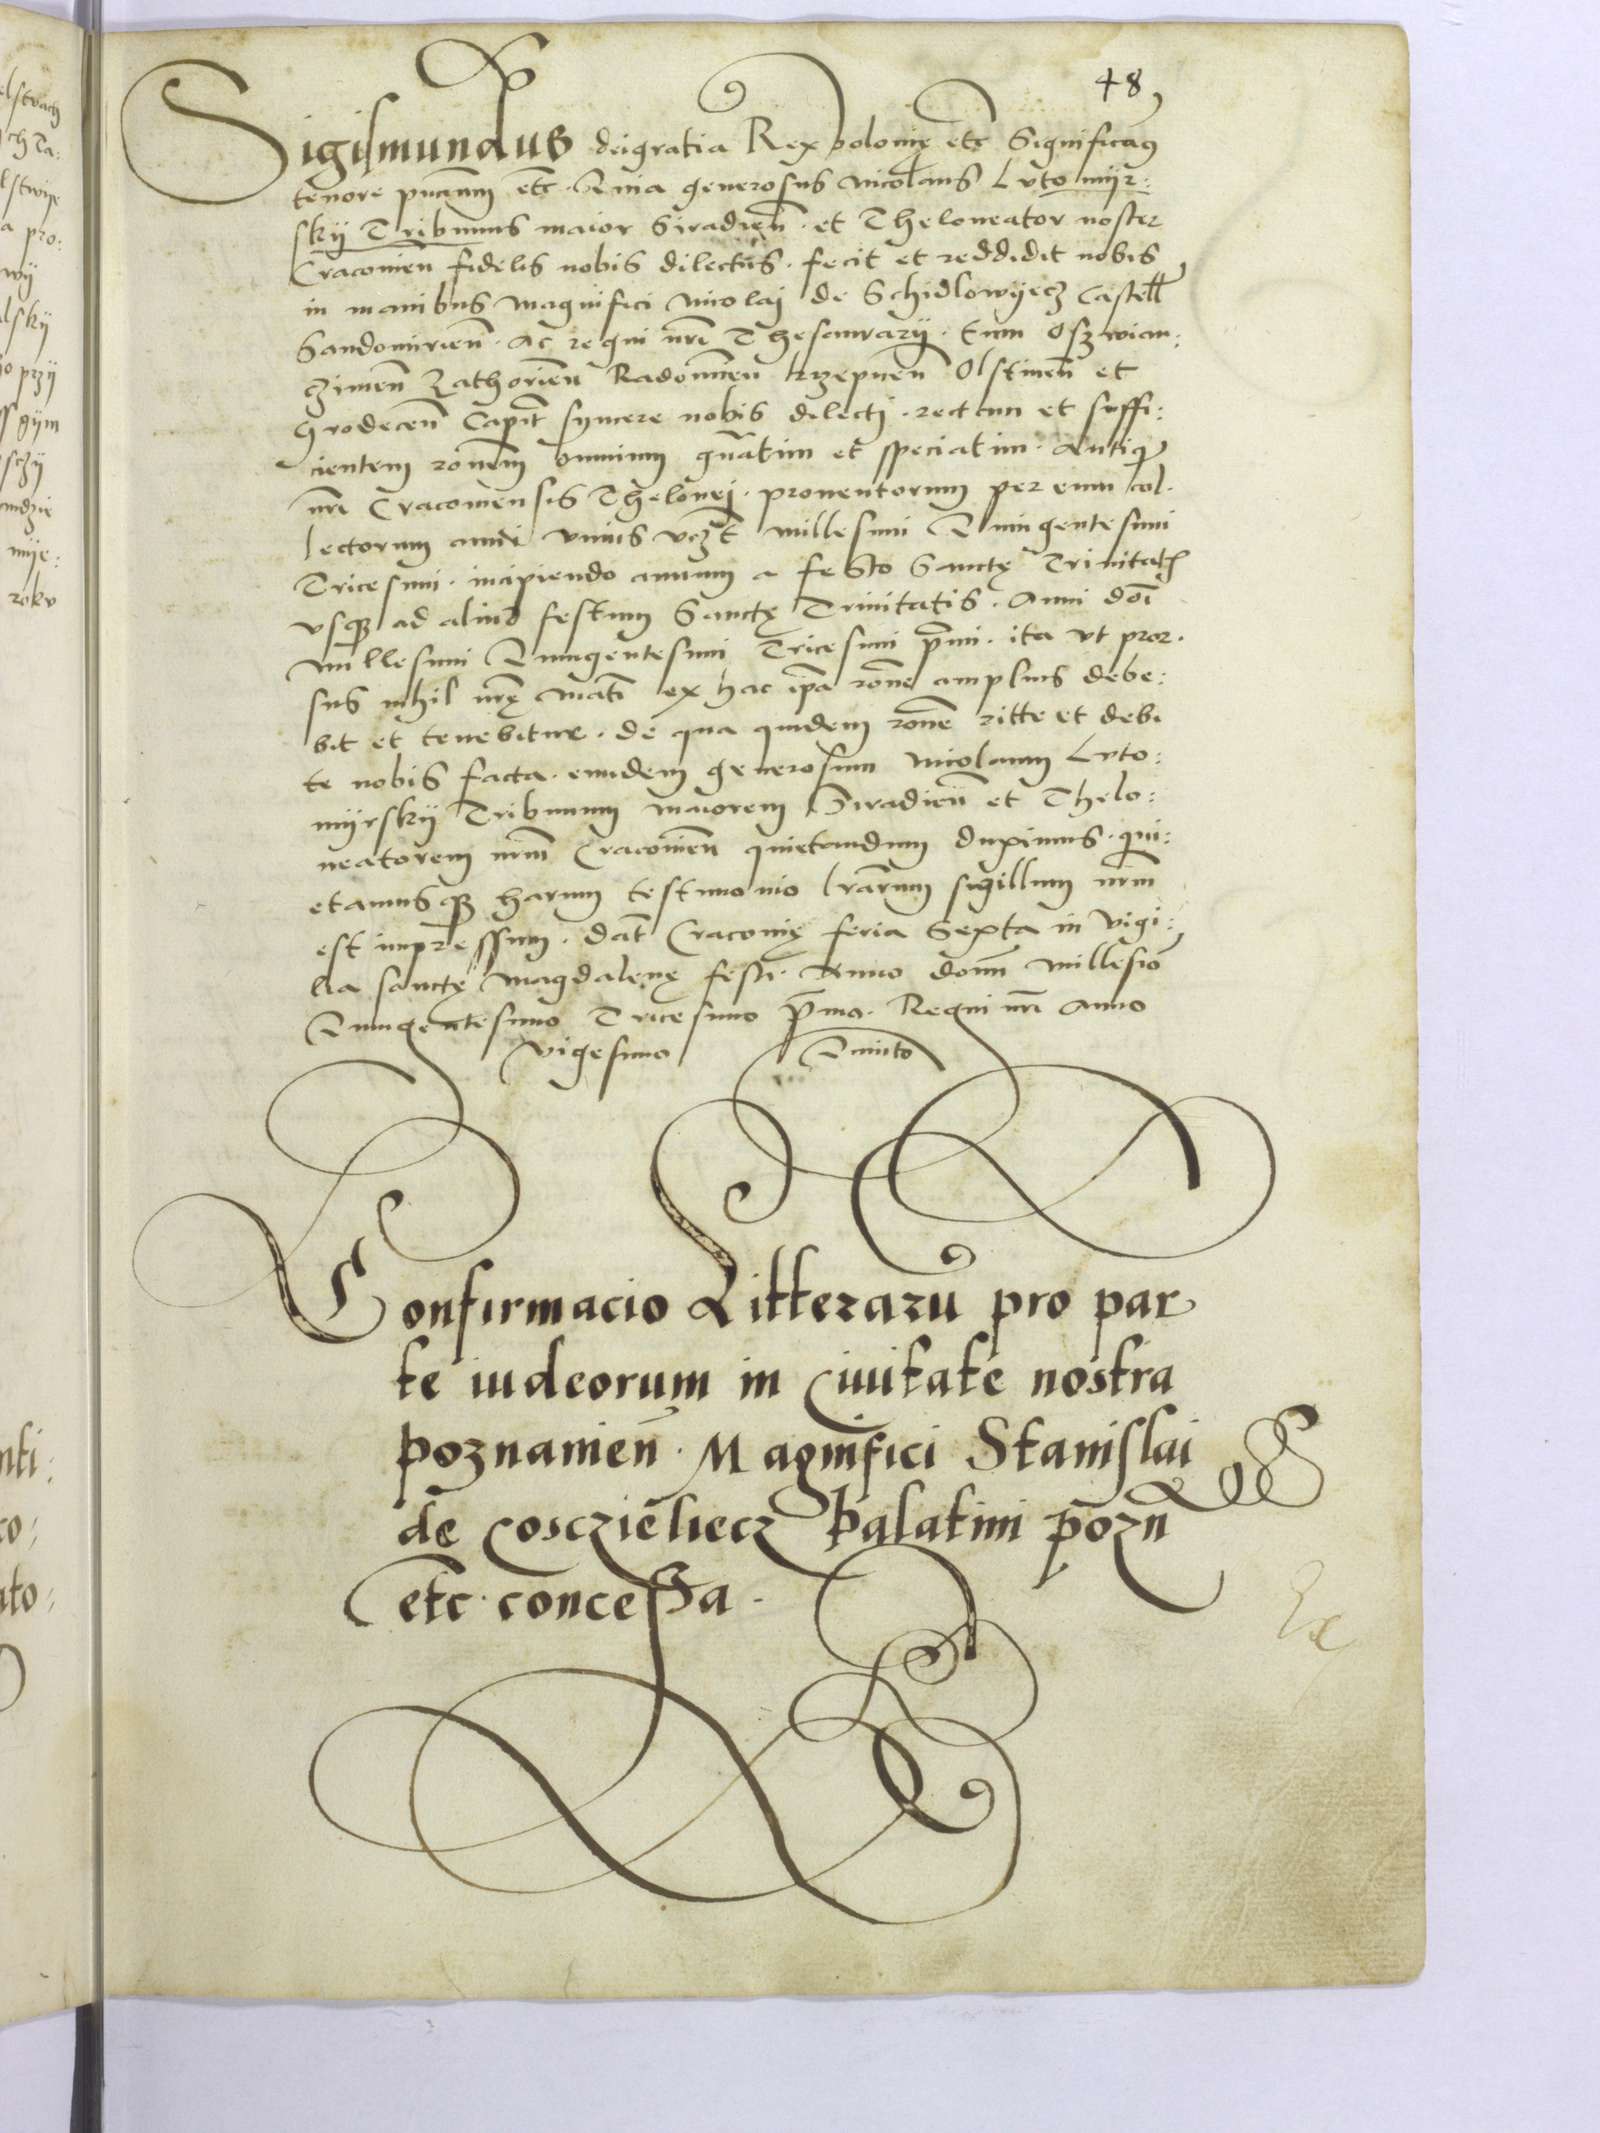 48
Sigismundus dei gratia Rex polonię etc Significamus
tenore pntium etc. Quia generosus Nicolaus Luto mijr:
skij Tribunus maior Siradien. et Theloneator noster
Cracovien fidelis nobis dilectus. fecit et reddidit nobis
in manibus magnifici Nicolaj de Schidlowyecz Castell
Sandomirien. Ac regni nri Thesaurarij. Eum Oszwian:
czimen Zathorien Radomien krzepicen Olstinen et
Grodecen Capit syncere nobis dilecti. rectam et suffi:
cientem ronem omnium gnatim et speciatim. antiqui
nri Cracoviensis Thelonej. proventorum per eum col.
lectorum anni unius vczt millesimi Quingentesimi
Tricesimi. incipiendo annum a festo Sanctę Trinitatis
usque ad aliud festum Sanctę Trinitatis. Anni doi
Millesimi Quingentesimi Tricesimi pmi. ita ut pror.
sus nihil nrę Mati ex hac ipa rone amplius debe:
bit et tenebitur. de qua quidem rone ritte et debi
te nobis facta. eundem generosum Nicolaum Luto:
mijrskij Tribunum maiorem Siradien et Thelo:
neatorem nrm Cracovien quietandum duximus. qui:
etamusque harum testimonio lrarum sigillum nrm
est impressum. Dat Cracovię feria Sexta in vigi:
lia sanctę Magdalenę festi. Anno domi Millesio
Quingentesimo Tricesimo pmo. Regni nri Anno
vigesimo Quinto
Confirmacio Litteraru pro par
te iudeorum in Civitate nostra
poznanien. Magnifici Stanislai
de Coszczieliecz Palatini pozn
etc. concessa.
Ex